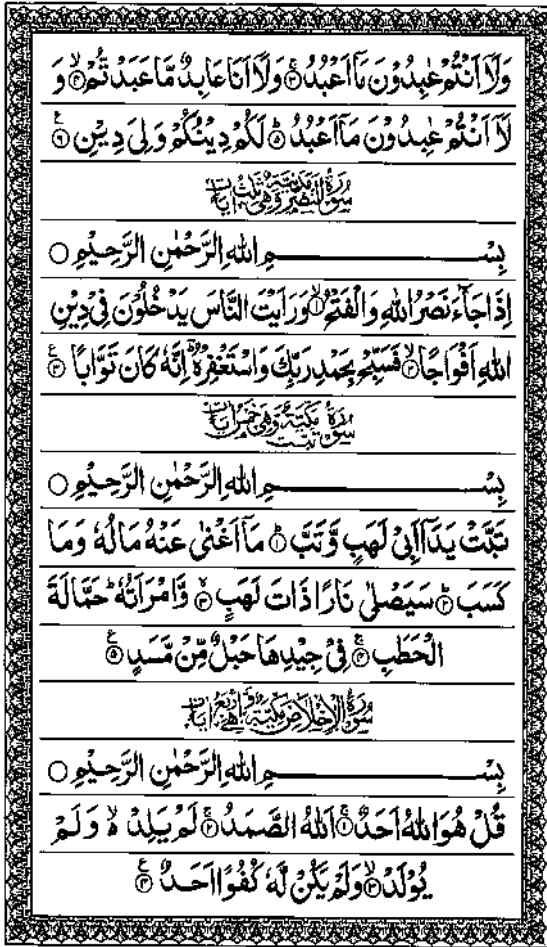 وَلَاۤ اَنْتُمْ عٰبِدُوْنَ مَاۤ اَعْبُدُ ۚ﴿۳﴾ وَلَاۤ اَنَا عَابِدٌ مَّا عَبَدْتُّمْ ۙ﴿۴﴾ وَ
لَاۤ اَنْتُمْ عٰبِدُوْنَ مَاۤ اَعْبُدُ ؕ﴿۵﴾ لَكُمْ دِیْنُكُمْ وَلِیَ دِیْنِ ﴿۶﴾ ع
سُوْرَةُ النَّصْرِ مَدَنِیَّةٌ وَّهِیَ ثَلٰثُ اٰیَاتٍ
بِسْمِ اللهِ الرَّحْمٰنِ الرَّحِیْمِ ○
اِذَا جَآءَ نَصْرُ اللهِ وَالْفَتْحُ ۙ﴿۱﴾ وَرَاَیْتَ النَّاسَ یَدْخُلُوْنَ فِیْ دِیْنِ
اللهِ اَفْوَاجًا ۙ﴿۲﴾ فَسَبِّحْ بِحَمْدِ رَبِّكَ وَاسْتَغْفِرْهُ ؔؕ اِنَّهٗ كَانَ تَوَّابًا ﴿۳﴾ ع
سُوْرَةُ تَبَّتْ مَكِّیَّةٌ وَّهِیَ خَمْسُ اٰیَاتٍ
بِسْمِ اللهِ الرَّحْمٰنِ الرَّحِیْمِ ○
تَبَّتْ یَدَاۤ اَبِیْ لَهَبٍ وَّتَبَّ ؕ﴿۱﴾ مَاۤ اَغْنٰی عَنْهُ مَالُهٗ وَمَا
كَسَبَ ؕ﴿۲﴾ سَیَصْلٰی نَارًا ذَاتَ لَهَبٍ ۚۖ﴿۳﴾ وَّامْرَاَتُهٗ ؕ حَمَّالَةَ
الْحَطَبِ ۚ﴿۴﴾ فِیْ جِیْدِهَا حَبْلٌ مِّنْ مَّسَدٍ ﴿۵﴾ ع
سُوْرَةُ الْاِخْلَاصِ مَكِّیَّةٌ وَّهِیَ اَرْبَعُ اٰیَاتٍ
بِسْمِ اللهِ الرَّحْمٰنِ الرَّحِیْمِ ○
قُلْ هُوَ اللهُ اَحَدٌ ۚ﴿۱﴾ اَللهُ الصَّمَدُ ۚ﴿۲﴾ لَمْ یَلِدْ ۙ۬ وَلَمْ
یُوْلَدْ ۙ﴿۳﴾ وَلَمْ یَكُنْ لَّهٗ كُفُوًا اَحَدٌ ﴿۴﴾ ع